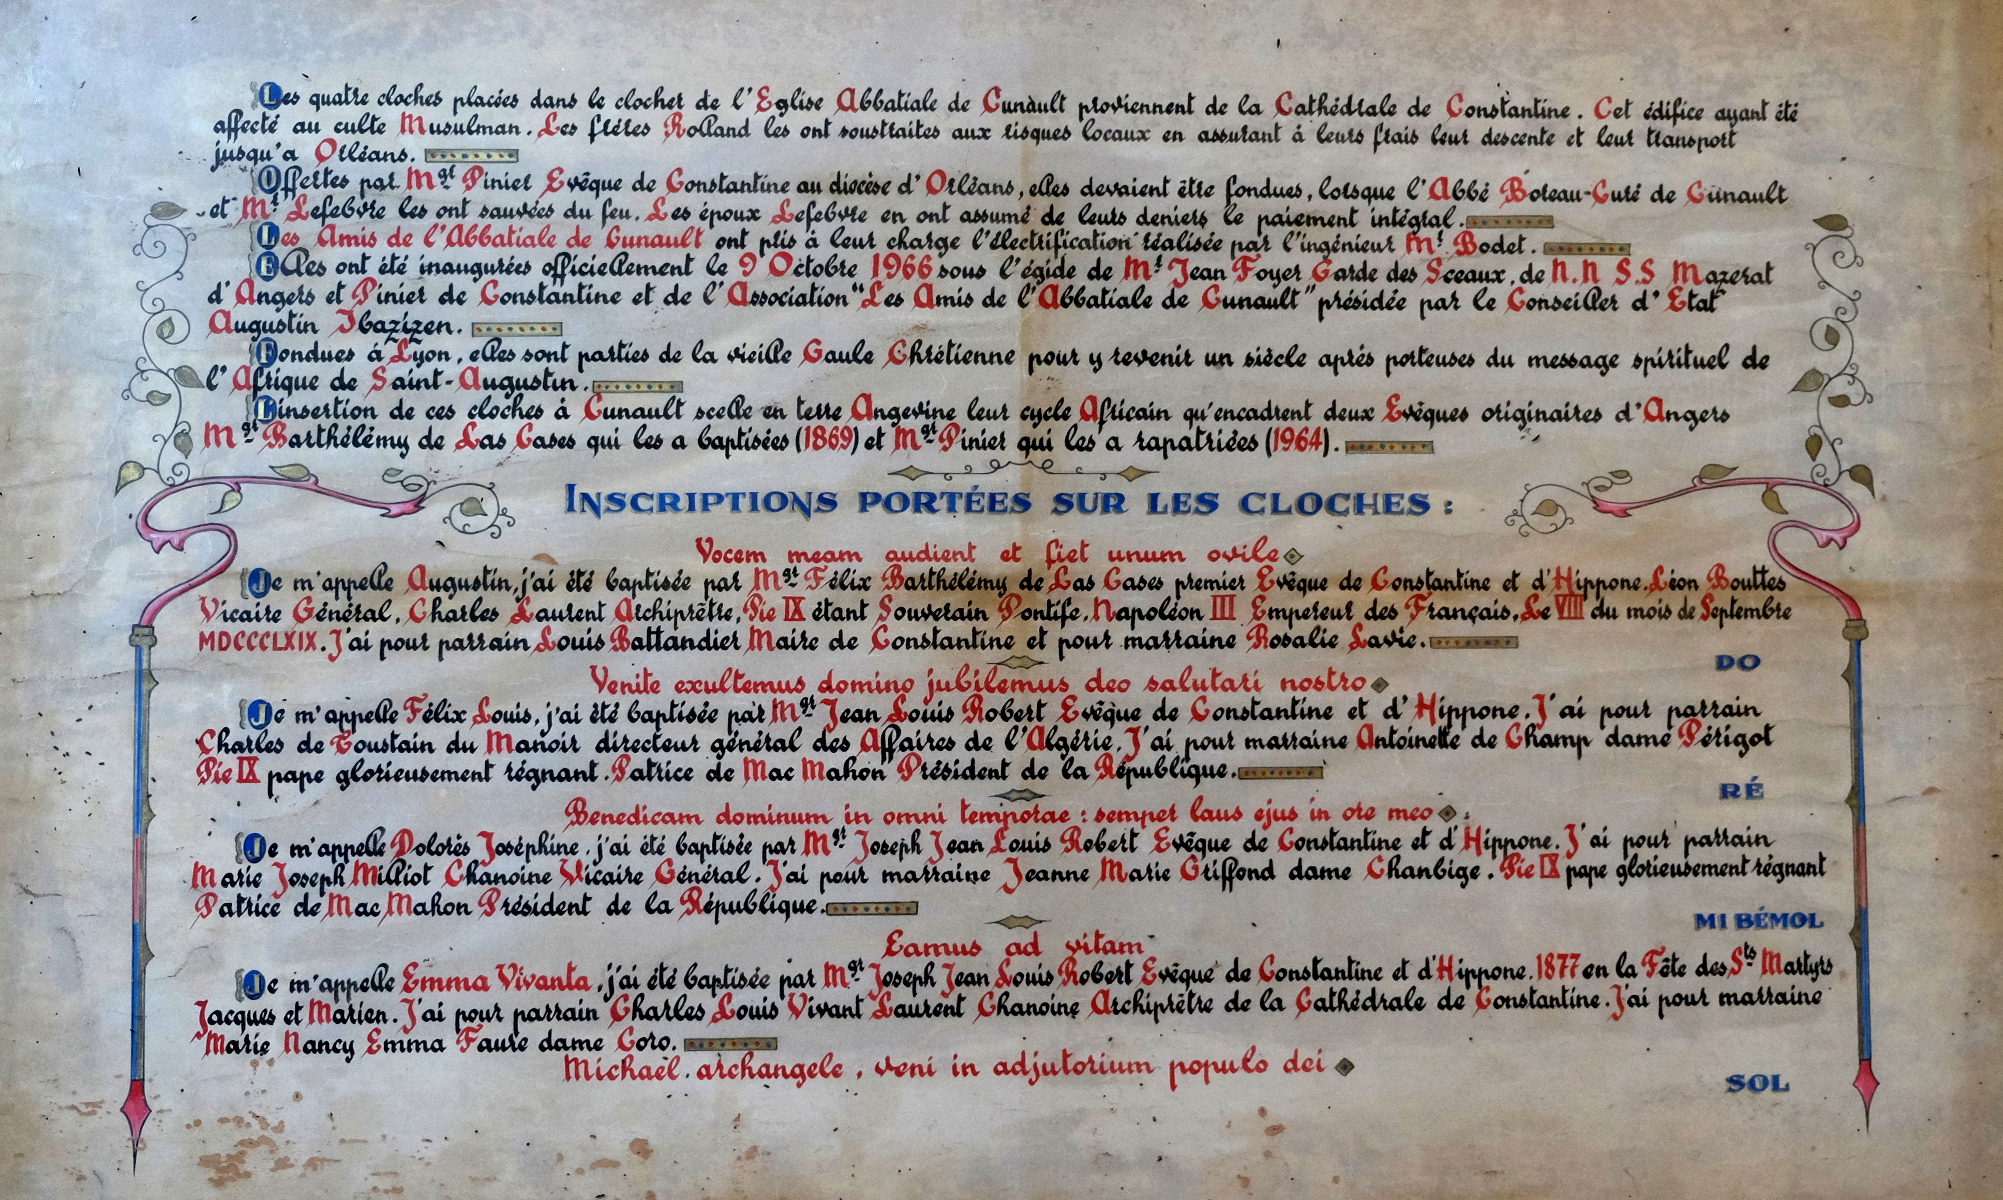 Les quatre cloches placées dans le clocher de l'Eglise Abbatiale de Cunàult proviennent de la Cathédrale de Constantine. Cet édifice ayant été
affecté au culte Musulman. Les frères Rolland les ont soustraites aux risques locaux en assurant à leurs frais leur descente et leur transport
jusqu'a Orléans.
Offertes par Mgr Pinier Evêque de Constantine au diocèse d'Orléans, elles devaient être fondues, lorsque l'Abbé Boreau-Curé de Cunault
et Mr Lefebvre les ont sauvées du feu. Les époux Lefebvre en ont assumé de leurs deniers le paiement intégral.
Les Amis de l'Abbatiale de Cunault ont pris à leur charge l'électrification réalisée par l'ingénieur Mr Bodet.
Elles ont été inaugurées officiellement le 9 Octobre 1966 sous l'égide de Mr Jean Foyer Garde des Sceaux, de N.N S.S Mazerat
d'Angers et Pinier de Constantine et de l'Association "Les Amis de l'Abbatiale de Cunault" présidée par le Conseiller d'Etat
Augustin Ibazizen.
Fondues à Lyon, elles sont parties de la vieille Gaule Chrétienne pour y revenir un siècle après porteuses du message spirituel de
l'Afrique de Saint-Augustin.
L'insertion de ces cloches à Cunault scelle en terre Angevine leur cycle Africain qu'encadrent deux Evêques originaires d'Angers
Mgr Barthélémy de Las Cases qui les a baptisées (1869) et Mgr Pinier qui les a rapatriées (1964).
INSCRIPTIONS PORTÉES SUR LES CLOCHES :
Vocem meam audient et fiet unum ovile
Je m'appelle Augustin, j'ai été baptisée par Mgr Félix Barthélémy de Las Cases premier Evêque de Constantine et d'Hippone. Léon Bouttes
Vicaire Général, Charles Laurent Archiprêtre, Pie IX étant Souverain Pontife, Napoléon III Empereur des Français, Le VIII du mois de Septembre
MDCCCLXIX. J'ai pour parrain Louis Battandier Maire de Constantine et pour marraine Rosalie Lavie.
DO
Venite exultemus domino jubilemus deo salutari nostro
Je m'appelle Félix Louis, j'ai été baptisée par Mgr Jean Louis Robert Evêque de Constantine et d'Hippone. J'ai pour parrain
Charles de Toustain du Manoir directeur général des Affaires de l'Algérie. J'ai pour marraine Antoinette de Champ dame Périgot
Pie IX pape glorieusement régnant. Patrice de Mac Mahon Président de la République.
RÉ
Benedicam dominum in omni temporae : semper laus ejus in ore meo :
Je m'appelle Dolorès Joséphine, j'ai été baptisée par Mgr Joseph Jean Louis Robert Evêque de Constantine et d'Hippone. J'ai pour parrain
Marie Joseph Milliot Chanoine Vicaire Général. J'ai pour marraine Jeanne Marie Griffond dame Chanbige. Pie IX pape glorieusement régnant
Patrice de Mac Mahon Président de la République.
MI BÉMOL
Eamus ad vitam
Je m'appelle Emma Vivanta, j'ai été baptisée par Mgr Joseph Jean Louis Robert Evêque de Constantine et d'Hippone. 1877 en la Fête des Sts Martyrs
Jacques et Marien. J'ai pour parrain Charles Louis Vivant Laurent Chanoine Archiprêtre de la Cathédrale de Constantine. J'ai pour marraine
Marie Nancy Emma Faure dame Coro.
Michaël. archangele, veni in adjutorium populo dei
SOL